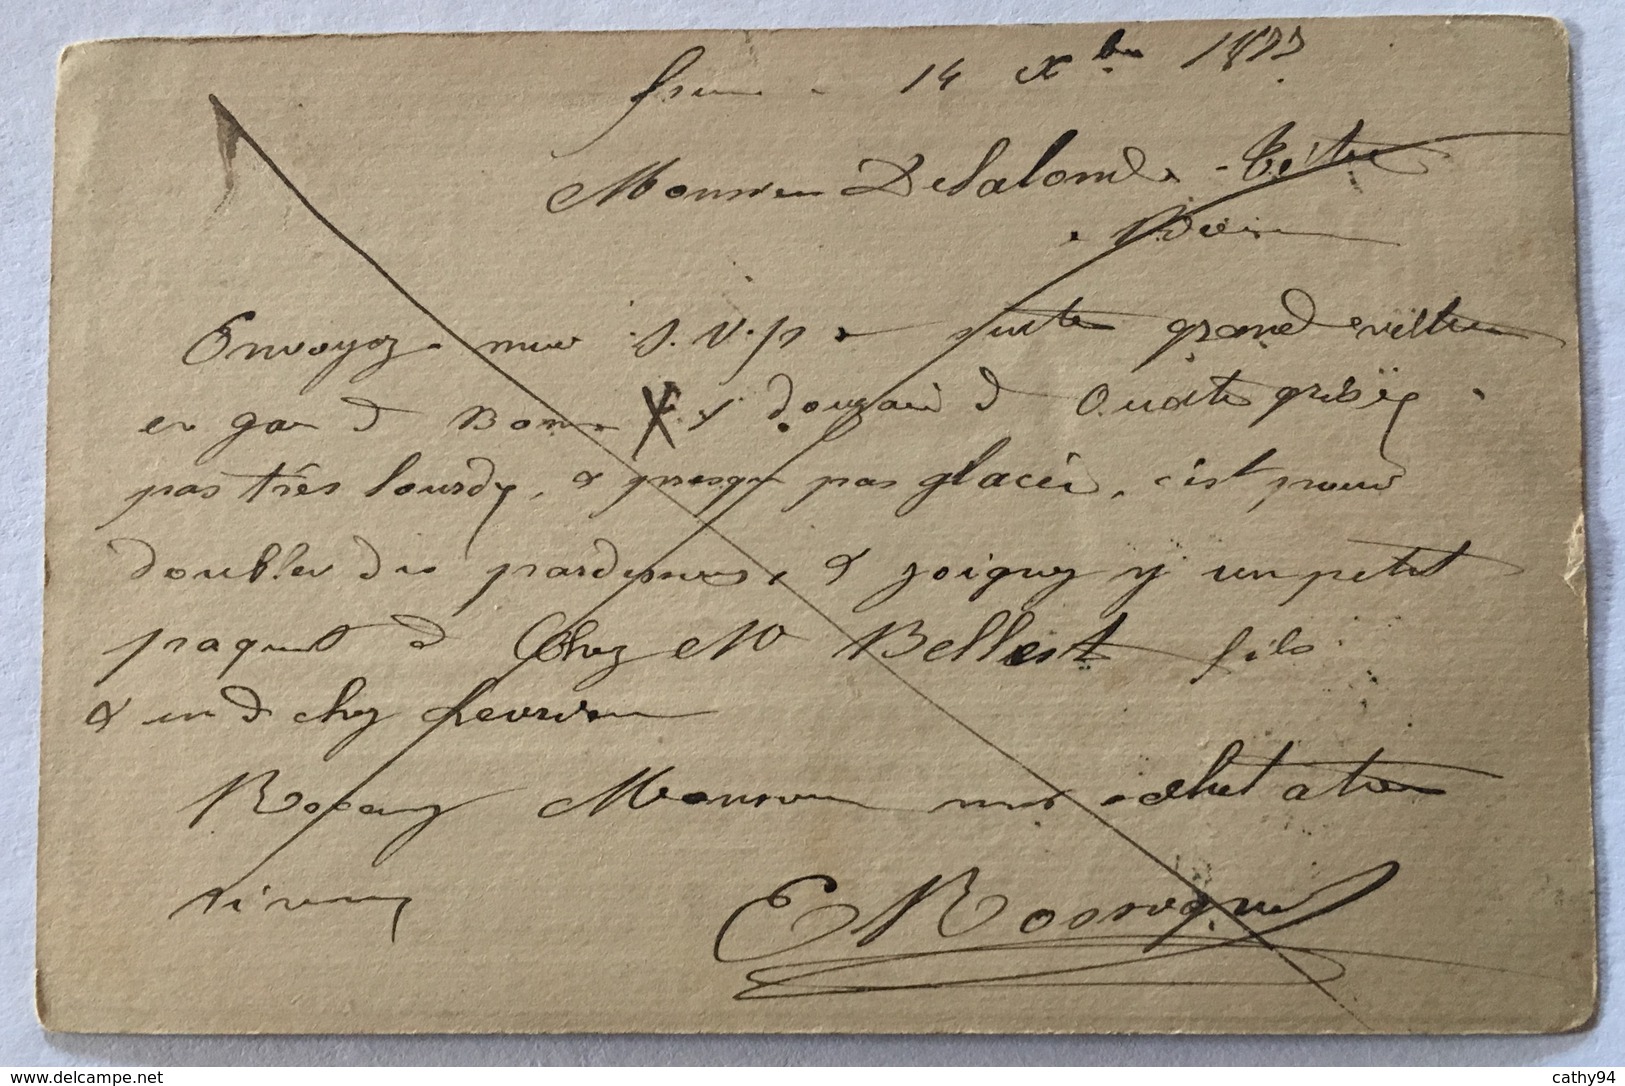 14 Xbre 1877
Monsieur Delalonde - Tétu
Envoyez moi S.V.P. suite grande vitesse
en gare de 1 douzaine d Ouate grisey
pas très lourdes, & presque pas glacée, c'est pour
doubler des pardessus, & joignez y un petit
paquet d Chez Mr Bellest fils
& un d chez
Recevez Monsieur mes salutations
E Rossignol
cathy94